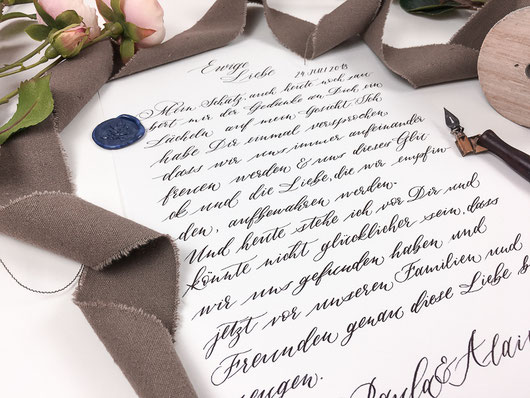 Ewige
Liebe 24. JULI 2018
Mein Schatz, auch heute noch zau
bert mir der Gedanke an Dich ein
Lächeln auf mein Gesicht. Ich
habe Dir einmal versprochen,
dass wir uns immer aufeinander
freuen werden & uns dieses Glit
ob und die Liebe, die wir empfin-
den, aufbewahren werden.
Und heute stehe ich vor Dir und
könnte nicht glücklicher sein, dass
wir uns gefunden haben und
jetzt vor unseren Familien und
Freunden genau diese Liebe
zeugen.
Paula & Alain